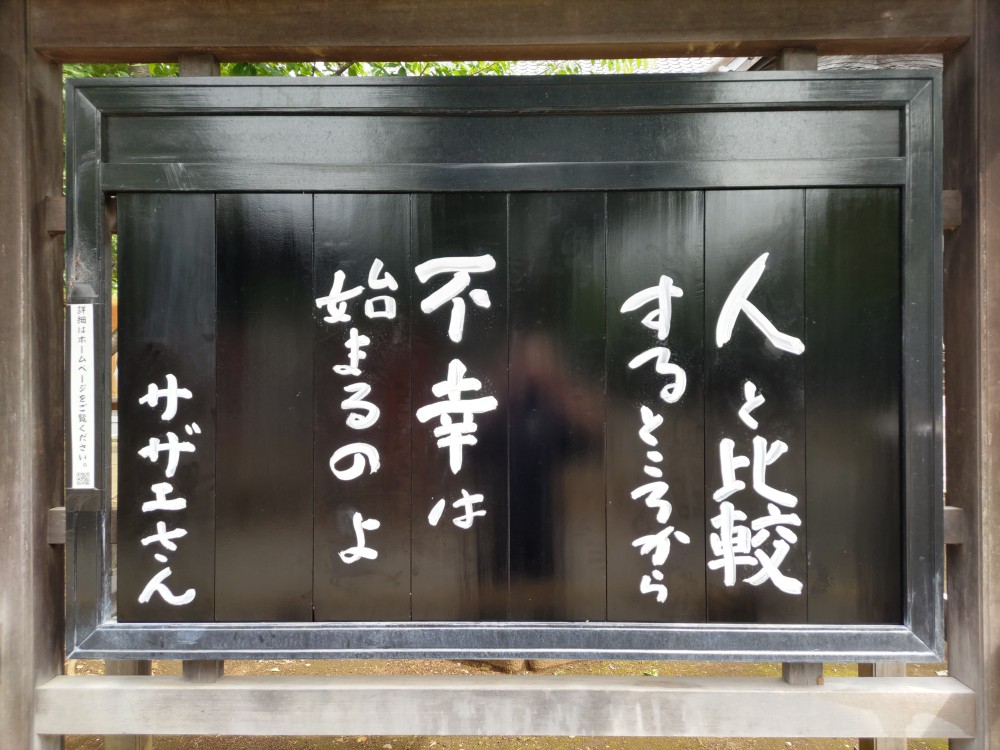 人と比較
するところから
不幸は
始まるのよ
サザエさん
詳細はホームページをご覧ください。